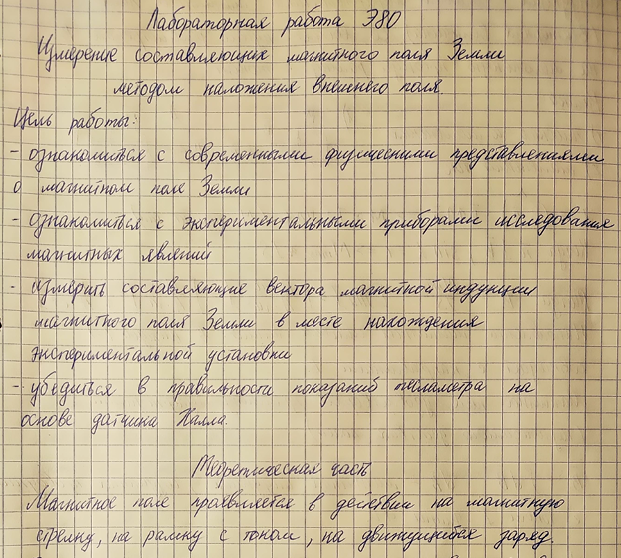 Лабораторная работа Э80
Измерение составляющих магнитного поля Земли
методом наложения внешнего поля.
Цель работы:
- ознакомиться с современными физическими представлениями
о магнитном поле Земли
- ознакомиться с экспериментальными приборами исследования
магнитных явлений
- измерить составляющие вектора магнитной индукции
магнитного поля Земли в месте нахождения
экспериментальной установки
- убедиться в правильности показаний тесламетра на
основе датчика Холла.
Теоретическая часть
Магнитное поле проявляется в действии на магнитную
стрелку, на рамку с током, на движущийся заряд.